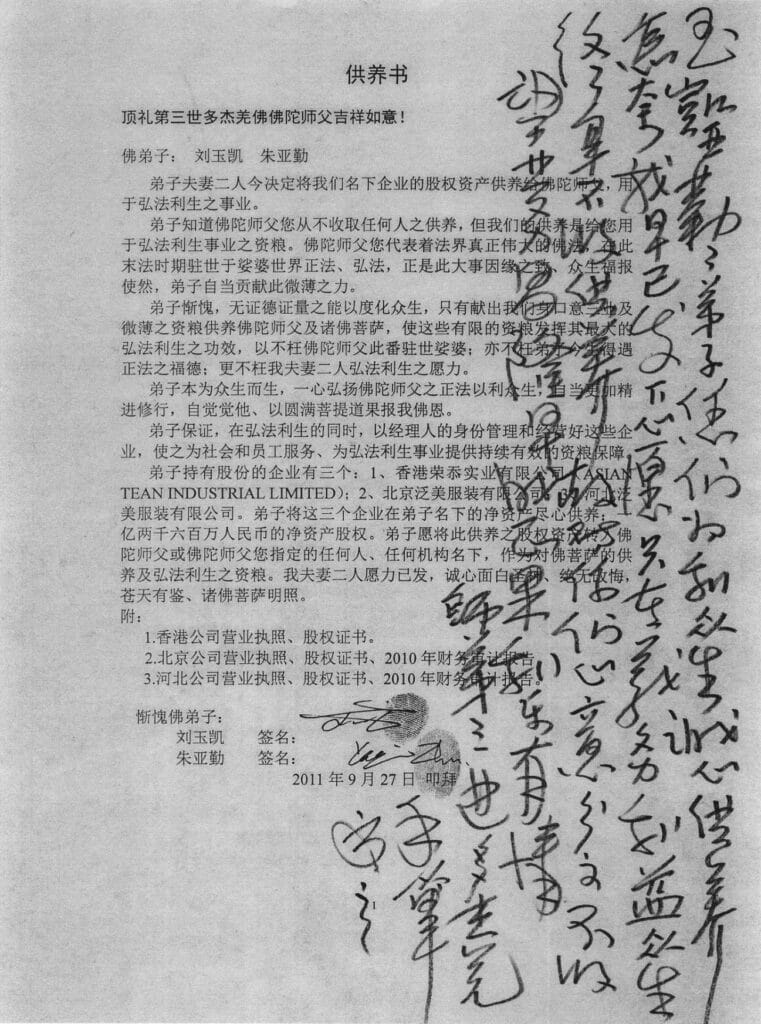 供养书
顶礼第三世多杰羌佛佛陀师父吉祥如意！
佛弟子： 刘玉凯 朱亚勤
弟子夫妻二人今决定将我们名下企业的股权资产供养给佛陀师父，用
于弘法利生之事业。
弟子知道佛陀师父您从不收取任何人之供养，但我们的供养是给您用
于弘法利生事业之资粮。佛陀师父您代表着法界真正伟大的佛法，在此
末法时期驻世于娑婆世界正法、弘法，正是此大事因缘之致、众生福报
使然，弟子自当贡献此微薄之力。
弟子惭愧，无证德证量之能以度化众生，只有献出我们身口意三业及
微薄之资粮供养佛陀师父及诸佛菩萨，使这些有限的资粮发挥其最大的
弘法利生之功效，以不枉佛陀师父此番驻世娑婆；亦不枉弟子今生得遇
正法之福德；更不枉我夫妻二人弘法利生之愿力。
弟子本为众生而生，一心弘扬佛陀师父之正法以利众生，自当更加精
进修行，自觉觉他、以圆满菩提道果报我佛恩。
弟子保证，在弘法利生的同时，以经理人的身份管理和经营好这些企
业，使之为社会和员工服务、为弘法利生事业提供持续有效的资粮保障。
弟子持有股份的企业有三个：1、香港荣忝实业有限公司（ASIAN
TEAN INDUSTRIAL LIMITED）；2、北京泛美服装有限公司；3、河北泛
美服装有限公司。弟子将这三个企业在弟子名下的净资产尽心供养：
亿两千六百万人民币的净资产股权。弟子愿将此供养之股权资产转入佛
陀师父或佛陀师父您指定的任何人、任何机构名下，作为对佛菩萨的供
养及弘法利生之资粮。我夫妻二人愿力已发，诚心面白圣树、绝无改悔，
苍天有鉴、诸佛菩萨明照。
附：
1.香港公司营业执照、股权证书。
2.北京公司营业执照、股权证书、2010 年财务审计报告
3.河北公司营业执照、股权证书、2010 年财务审计报告。
惭愧佛弟子：
刘玉凯 签名：
朱亚勤 签名：
2011 年 9 月 27 日 叩拜
玉凯亚勤二弟子 你们为利众生诚心供养
我早已发下心愿 只有义务利益众生
不收供养 你们心意分文不收
果 利乐有情
第三世多杰羌